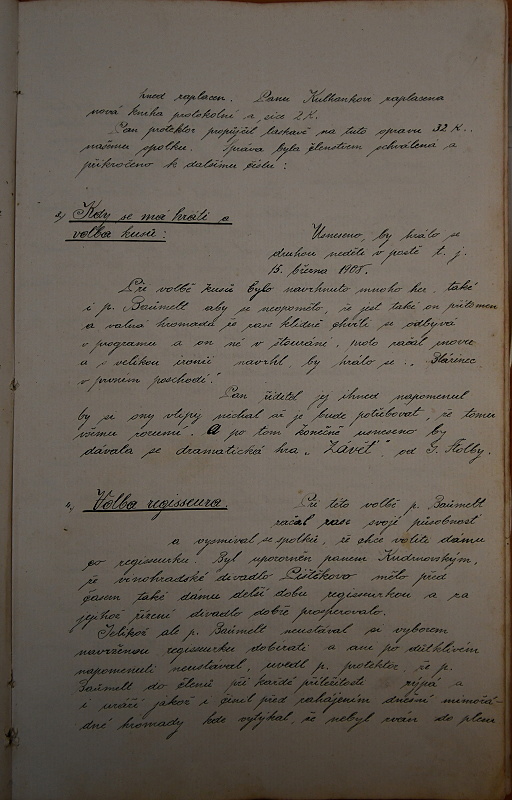 ihned zaplacen. Panu Kulhankovi zaplacena
nová kniha protokolní a sice 2 K.
Pan protektor propůjčil laskavě na tuto opravu 32 K..
našemu spolku. Zpráva byla členstvem schválená a
přikročeno k dalšímu číslu:
3) Kdy se má hráti a
volba kusů:
Usneseno, by hrálo se
druhou neděli v postě t. j.
15. března 1908.
Při volbě kusů bylo navrhnuto mnoho her, také
i p. Baümelt aby se neopomělo, že jest také on přítomen
a valná hromada je zase klidně chvíli se odbývá
v programu a on ne v štourání, proto začal znovu
a s velikou ironií navrhl, by hrálo se „Blázinec
v prvním poschodí."
Pan ředitel jej ihned napomenul
by si ony vtipy nechal až je bude potřebovat, že tomu
všemu rozumí. A po tom konečně usneseno by
dávala se dramatická hra „Závěť", od J. Štolby.
4) Volba regisseura.
Při této volbě p. Baümelt
začal zase svojí působnost
a vysmíval se spolku, že chce voliti dámu
co regisseurku. Byl upozorněn panem Kudrnovským,
že vinohradské divadlo Pištěkovo mělo před
časem také dámu delší dobu regisseurkou a za
jejíhož řízení divadlo dobře prosperovalo.
Jelikož ale p. Baümelt neustával si výborem
navrženou regisseurku dobírati a ani po důtklivém
napomenutí neustával, uvedl p. protektor, že p.
Baümelt do členů při každé příležitosti rýpá a
i uráží jakož i činil před zahájením dnešní mimořá-
dné hromady kde vytýkal, že nebyl zván do plesu